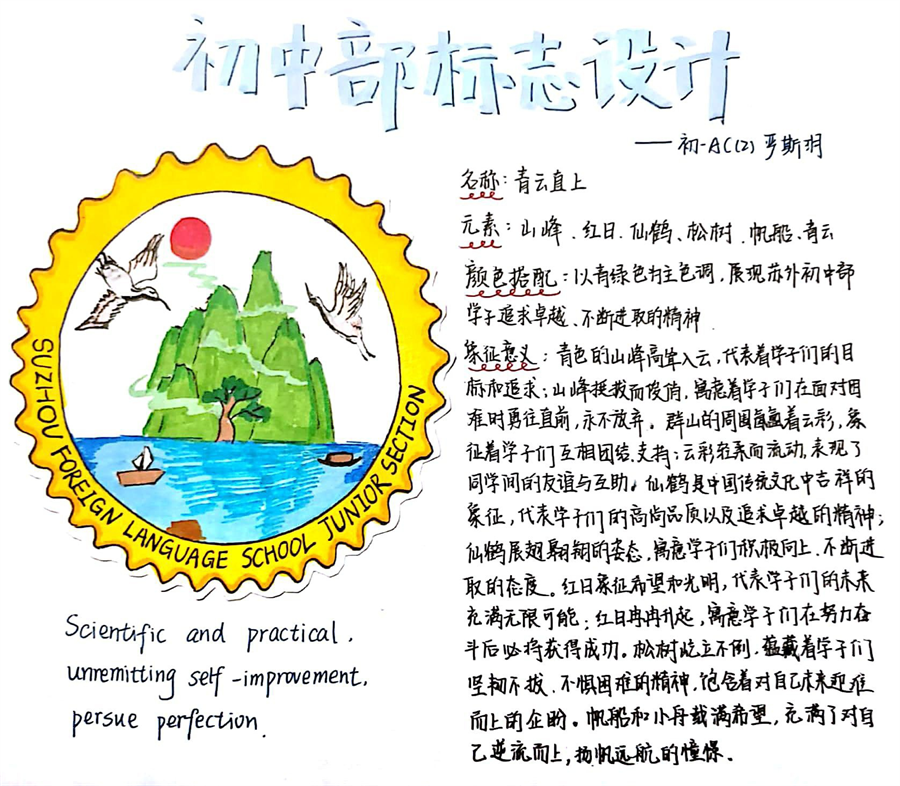 初中部标志设计
——初一AC(2) 严斯羽
名称：青云直上
元素：山峰、红日、仙鹤、松树、帆船、青云
颜色搭配：以青绿色为主色调，展现苏外初中部
学子追求卓越、不断进取的精神
象征意义：青色的山峰高耸入云，代表着学子们的目
标和追求；山峰挺拔而俊俏，寓意着学子们在面对困
难时勇往直前，永不放弃。群山的周围蕴着云彩，象
征着学子们互相团结、支持；云彩轻柔而流动，表现了
同学间的友谊与互助。仙鹤是中国传统文化中吉祥的
象征，代表学子们的高尚品质以及追求卓越的精神；
仙鹤展翅翱翔的姿态，寓意学子们积极向上、不断进
取的态度。红日象征希望和光明，代表学子们的未来
充满无限可能；红日冉冉升起，寓意学子们在努力奋
斗后必将获得成功。松树屹立不倒，蕴藏着学子们
坚韧不拔、不惧困难的精神，饱含着对自己未来迎难
而上的企盼。帆船和小舟载满希望，充满了对自
己逆流而上，扬帆远航的憧憬。
SUZHOU FOREIGN LANGUAGE SCHOOL JUNIOR SECTION
Scientific and practical,
unremitting self-improvement,
persue perfection.